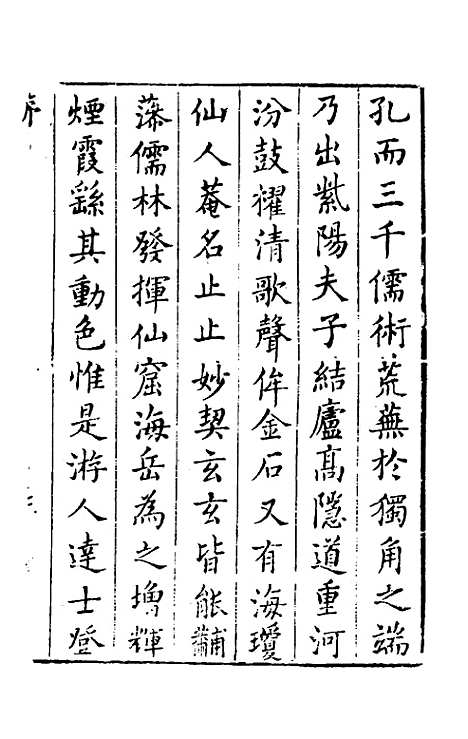 孔而三千儒術荒蕪於獨角之端
乃出紫陽夫子結廬高隱道重河
汾鼓櫂清歌聲侔金石又有海瓊
仙人菴名止止妙契玄玄皆能黼
藻儒林發揮仙窟海岳為之增輝
煙霞繇其動色惟是游人達士登
序
二